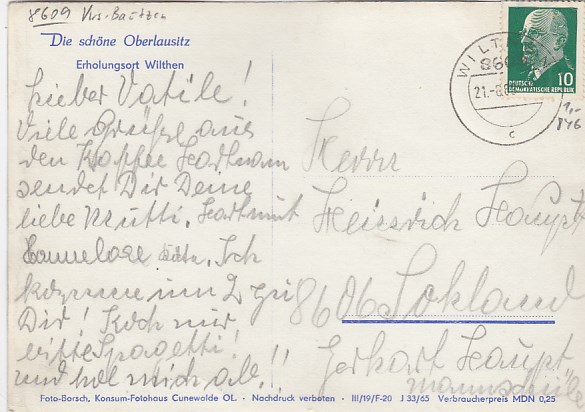 8609 Krs. Bautzen
Die schöne Oberlausitz
Erholungsort Wilthen
Lieber Vatile!
Viele Grüße aus
den Kaffee Hartmann
sendet Dir Deine
liebe Mutti, Hartmut
Hannelore Ich
komme um 2 zu
Dir! Koch mir
bitte Spagetti!
und hol mich ab!!
WILTHEN
860
21.-8.6
c
10
DEUTSCHE
DEMOKRATISCHE REPUBLIK
1,-
846
Herrn
Heinrich Haupt
8606 Sohland
Gerhart Hauptmannschule
Foto-Borsch, Konsum-Fotohaus Cunewalde OL. • Nachdruck verboten • III/19/F-20 J 33/65 Verbraucherpreis MDN 0,25